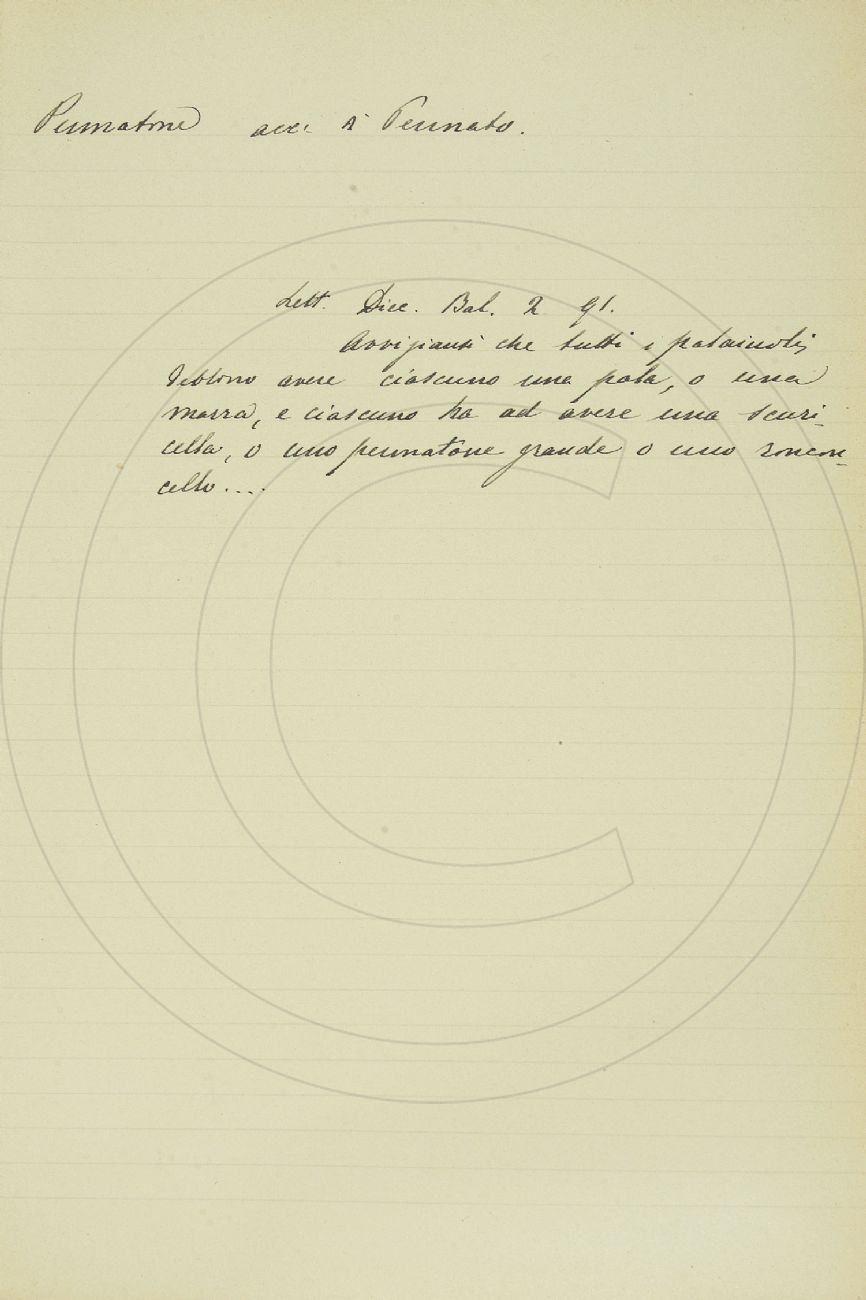 Pennatone accr. di Pennato.
Lett. Diec. Bal. 2 91.
Avvisianti che tutti i palaiuoli
debbono avere ciascuno una pala, o una
marra, e ciascuno ha ad avere una scuri-
cella, o uno pennatone grande o uno roncon-
cello....